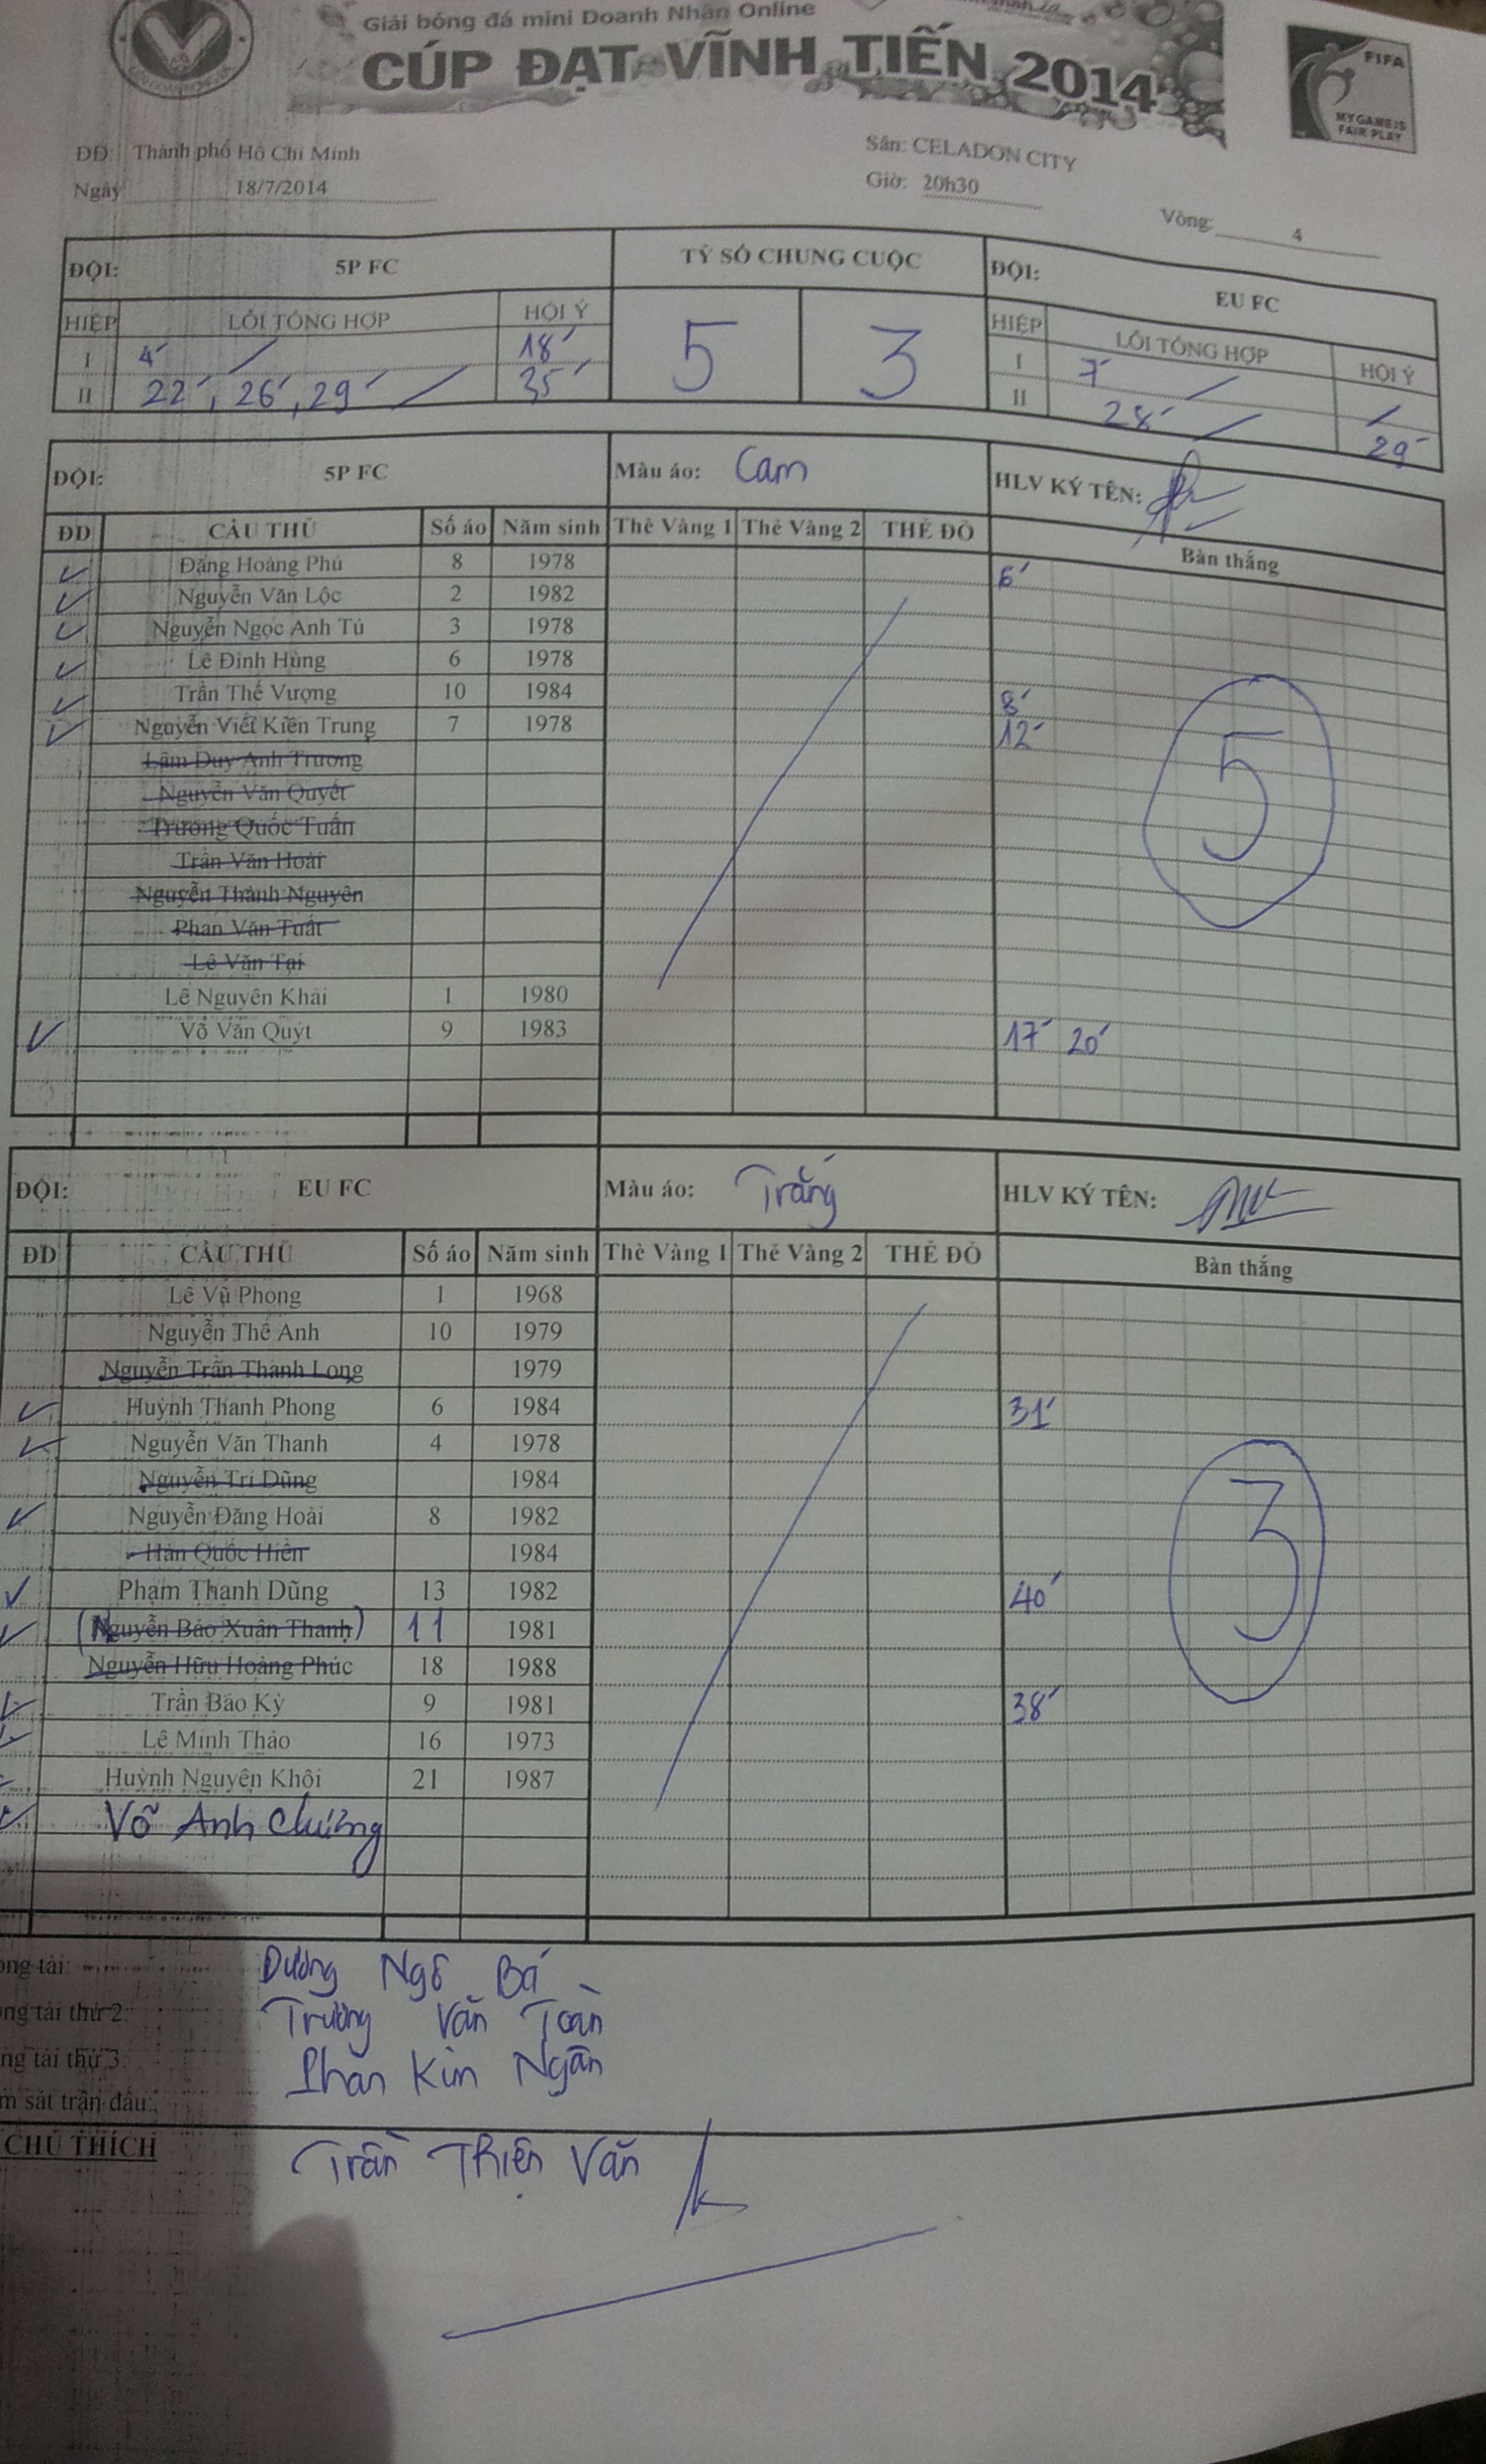 Giải bóng đá mini Doanh Nhân Online
CÚP ĐẠT VĨNH TIẾN 2014
FIFA
MY GAME IS
FAIR PLAY
ĐĐ: Thành phố Hồ Chí Minh
Sân: CELADON CITY
Ngày 18/7/2014
Giờ: 20h30
Vòng: 4
ĐỘI: 5P FC TỶ SỐ CHUNG CUỘC ĐỘI: EU FC
HIỆP LỖI TỔNG HỢP HỘI Ý 5 3 HIỆP LỖI TỔNG HỢP HỘI Ý
I 4' / 18' I 7' / /
II 22', 26', 29' / 35' II 28' / 29'
ĐỘI: 5P FC Màu áo: Cam HLV KÝ TÊN:
ĐD CẦU THỦ Số áo Năm sinh Thẻ Vàng 1 Thẻ Vàng 2 THẺ ĐỎ Bàn thắng
✓ Đặng Hoàng Phú 8 1978 6'
✓ Nguyễn Văn Lộc 2 1982
✓ Nguyễn Ngọc Anh Tú 3 1978
✓ Lê Đình Hùng 6 1978
✓ Trần Thế Vượng 10 1984 8'
✓ Nguyễn Viết Kiên Trung 7 1978 12'
Lâm Duy Anh Trương
Nguyễn Văn Quyết
Trương Quốc Tuấn
Trần Văn Hoài
Nguyễn Thành Nguyên
Phan Văn Tuất
Lê Văn Tại
5
Lê Nguyên Khải 1 1980
✓ Võ Văn Quýt 9 1983 17' 20'
ĐỘI: EU FC Màu áo: Trắng HLV KÝ TÊN:
ĐD CẦU THỦ Số áo Năm sinh Thẻ Vàng 1 Thẻ Vàng 2 THẺ ĐỎ Bàn thắng
Lê Vũ Phong 1 1968
Nguyễn Thế Anh 10 1979
Nguyễn Trần Thành Long 1979
✓ Huỳnh Thanh Phong 6 1984 31'
✓ Nguyễn Văn Thanh 4 1978
Nguyễn Trí Dũng 1984
✓ Nguyễn Đăng Hoài 8 1982
Hàn Quốc Hiển 1984
3
✓ Phạm Thanh Dũng 13 1982 40'
✓ (Nguyễn Bảo Xuân Thanh) 11 1981
Nguyễn Hữu Hoàng Phúc 18 1988
✓ Trần Bảo Kỳ 9 1981 38'
✓ Lê Minh Thảo 16 1973
✓ Huỳnh Nguyên Khôi 21 1987
✓ Võ Anh Chương
ọng tài: Dương Ngô Bá
ọng tài thứ 2: Trương Văn Toàn
ng tài thứ 3: Phan Kim Ngân
m sát trận đấu:
CHÚ THÍCH
Trần Thiện Văn